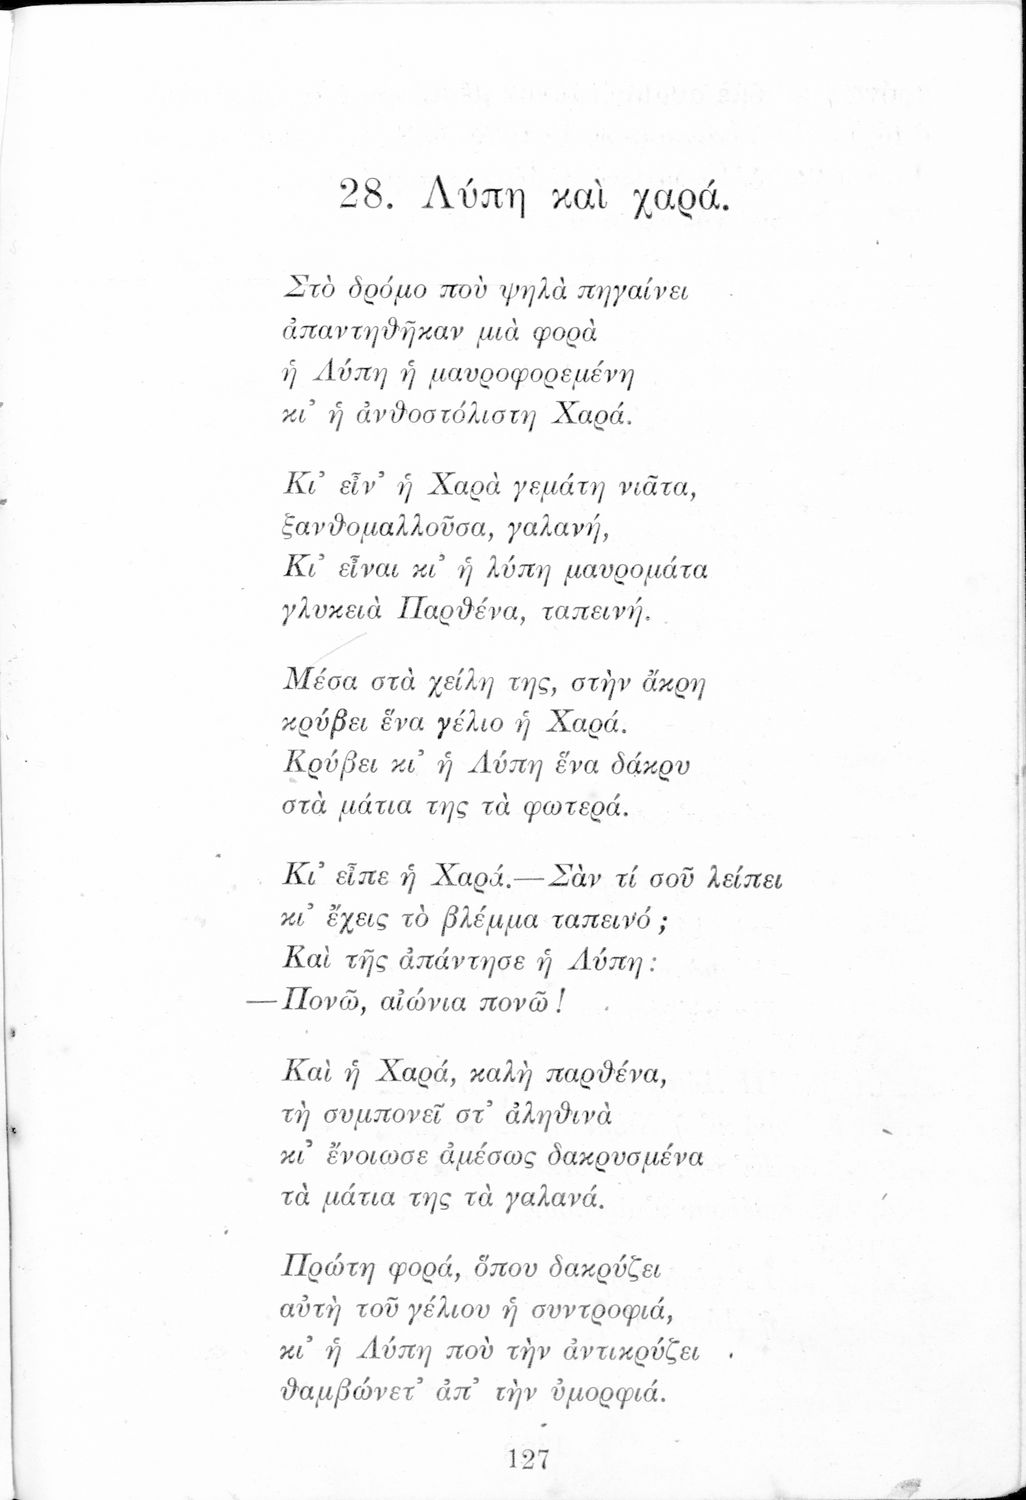 28. Λύπη καὶ χαρά.
Στὸ δρόμο ποὺ ψηλὰ πηγαίνει
ἀπαντηθῆκαν μιὰ φορὰ
ἡ Λύπη ἡ μαυροφορεμένη
κι᾽ ἡ ἀνθοστόλιστη Χαρά.
Κι᾽ εἶν᾽ ἡ Χαρὰ γεμάτη νιᾶτα,
ξανθομαλλοῦσα, γαλανή,
Κι᾽ εἶναι κι᾽ ἡ λύπη μαυρομάτα
γλυκειὰ Παρθένα, ταπεινή.
Μέσα στὰ χείλη της, στὴν ἄκρη
κρύβει ἕνα γέλιο ἡ Χαρά.
Κρύβει κι᾽ ἡ Λύπη ἕνα δάκρυ
στὰ μάτια της τὰ φωτερά.
Κι᾽ εἶπε ἡ Χαρά.—Σὰν τί σοῦ λείπει
κι᾽ ἔχεις τὸ βλέμμα ταπεινό;
Καὶ τῆς ἀπάντησε ἡ Λύπη:
—Πονῶ, αἰώνια πονῶ!
Καὶ ἡ Χαρά, καλὴ παρθένα,
τὴ συμπονεῖ στ᾽ ἀληθινὰ
κι᾽ ἔνοιωσε ἀμέσως δακρυσμένα
τὰ μάτια της τὰ γαλανά.
Πρώτη φορά, ὅπου δακρύζει
αὐτὴ τοῦ γέλιου ἡ συντροφιά,
κι᾽ ἡ Λύπη ποὺ τὴν ἀντικρύζει
θαμβώνετ᾽ ἀπ᾽ τὴν ὀμορφιά.
127